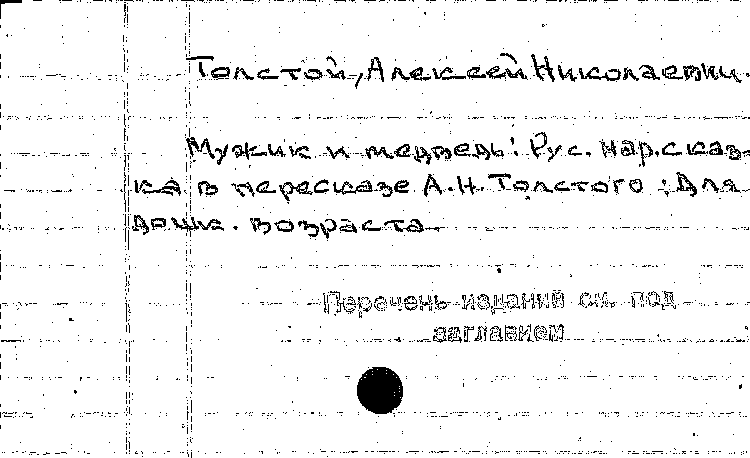 Толстой, Алексей Николаевич.
Мужик и медведь: Рус. нар. сказ-
ка в пересказе А.Н. Толстого: Для
дошк. возраста.
Перечень изданий см. под
заглавием